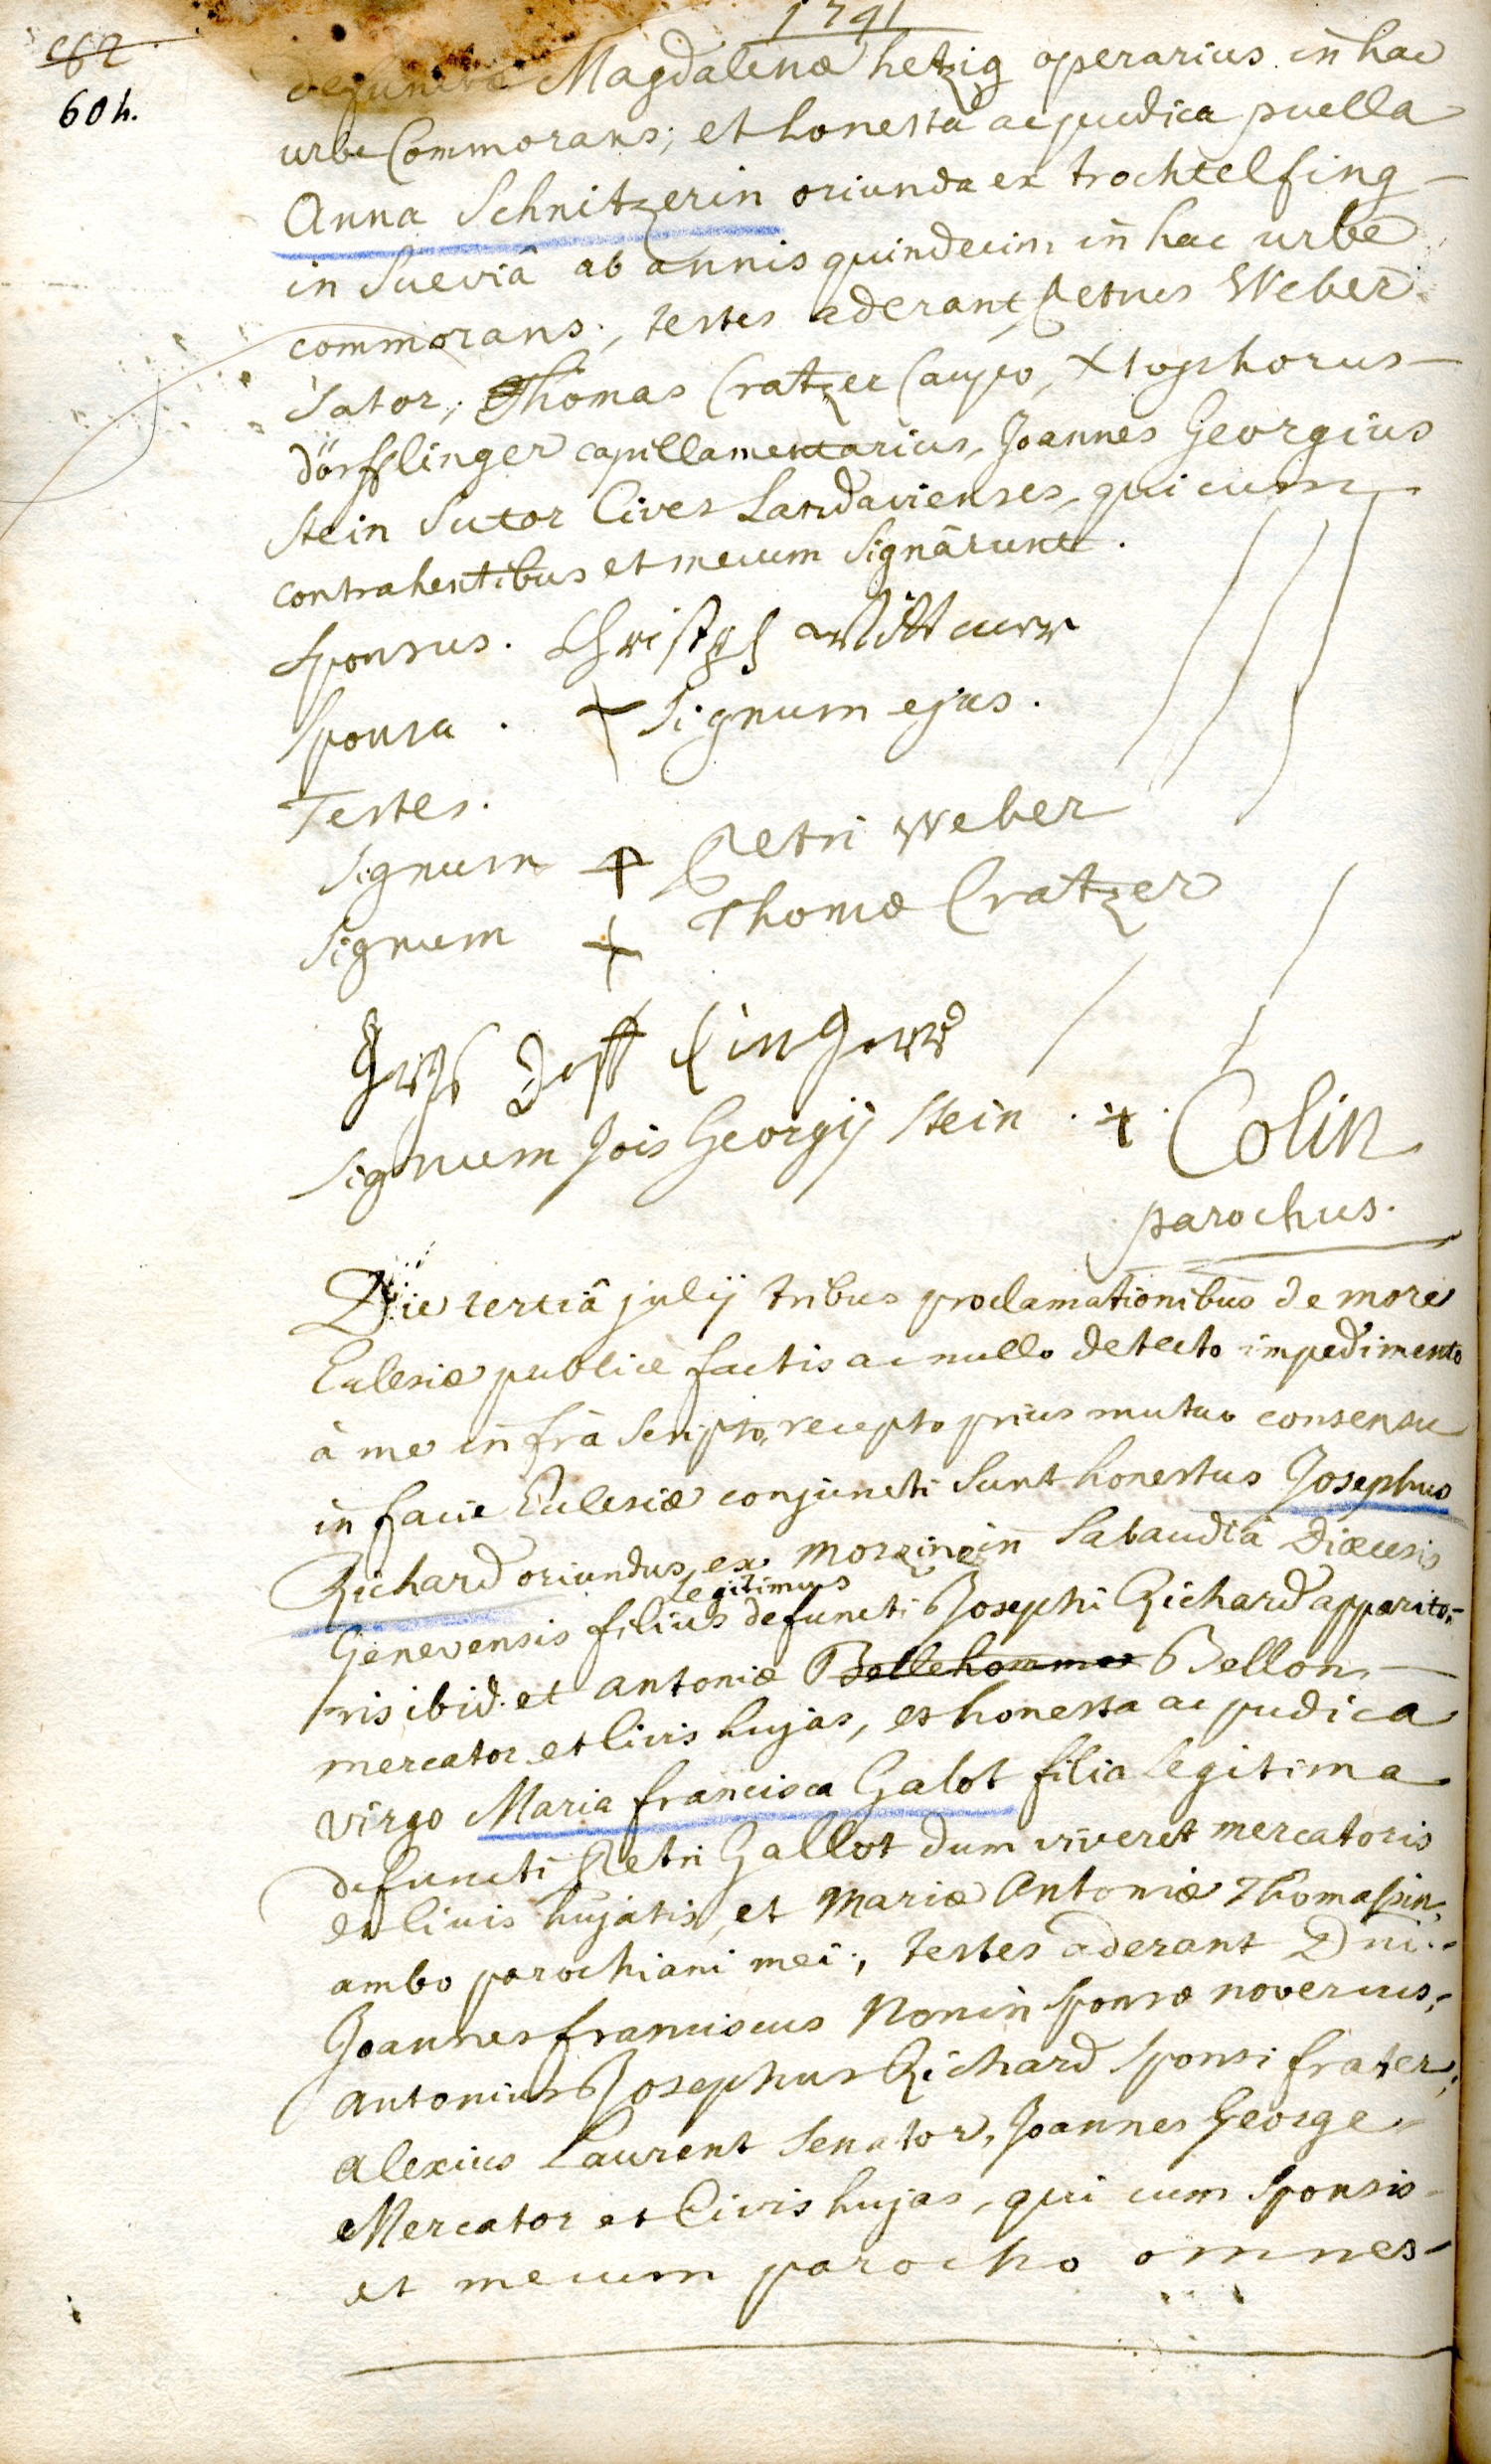 1741
604.
defunctae Magdalenæ hetzig operarius in hac
urbe Commorans; et honesta ac pudica puella
Anna Schnitzerin oriunda ex trochtelfing-
in Sueviâ ab annis quindecim in hac urbe
commorans; testes aderant Petrus Weber
Sator, Thomas Cratzer Caupo, Xtophorus
dörfflinger capillamentarius, Joannes Georgius
Stein Sutor Cives Landavienses, qui cum
contrahentibus et mecum Signârunt.
Sponsus. Christoph
Sponsa. + Signum ejus.
Testes.
Signum + Petri Weber
Signum + Thomæ Cratzer
Signum Jois Georgij Stein + Colin
parochus.
Die tertiâ julij tribus proclamationibus de more
Eclesiæ publice factis ac nullo detecto impedimento
à me infrà Scripto, recepto prius mutuo consensu
in facie Eclesiæ conjuncti Sunt honestus Josephus
Richard oriundus ex morzine in Sabaudiâ Diœcesis
Genevensis filius legitimus defuncti Josephi Richard apparito-
ris ibid. et antoniæ Bellehomme Bellon
mercator et Civis hujas, et honesta ac pudica
virgo Maria francisca Galot filia legitima
defuncti Petri Gallot dum viveret mercatoris
et Civis hujatis, et Mariæ Antoniæ Thomassin,
ambo parochiani mei; testes aderant Dni.
Joannes franciscus Nonin Sponsæ novercus,
antonius Josephus Richard Sponsi frater,
alexius Laurent Senator, Joannes George
Mercator et Civis hujas, qui cum Sponsis
et mecum parocho omnes-